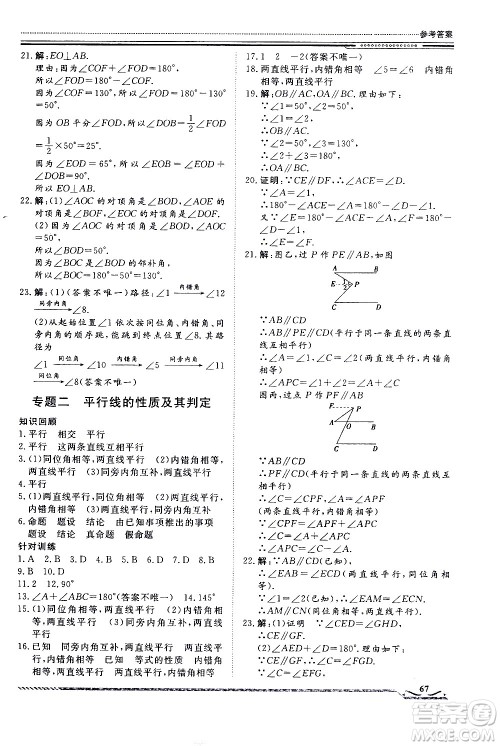 参考答案
21.解:EO⊥AB.
因为∠COF+∠FOD=180°,
∠COF=130°,
所以∠FOD=180°-130°
=50°.
因为OB平分∠FOD,
所以∠FOB=∠BOD=1/2∠FOD
=1/2×50°=25°.
因为∠EOD=65°,所以∠EOB=90°.
所以EO⊥AB.
22.解:(1)∠AOC的对顶角是
∠BOF,∠EOC的对顶角是∠DOF.
(2)∠AOC的对顶角是∠BOF,
所以∠BOF=50°.
因为∠BOC是∠AOC的邻补角,
所以∠BOC=180°-50°=130°.
23.解:(1)(答案不唯一)路径:∠1 内错角 ∠12
同旁内角 ∠8.
(2)从起始∠1依次按同位角、内错角、
同旁内角的顺序跳,能跳到终点∠8.其
路径为∠1 同位角 ∠10 内错角 ∠5
同旁内角 ∠8(答案不唯一)
专题二 平行线的性质及其判定
知识回顾
1.平行 相交 平行
2.平行 这两条直线互相平行
3.(1)同位角相等,两直线平行 (2)内错角相
等,两直线平行 (3)同旁内角互补,两直线平行
4.平行
5.(1)两直线平行,同位角相等 (2)两直线平
行,内错角相等 (3)两直线平行,同旁内角互补
6.命题 题设 结论 由已知事项推出的事项
题设 结论 真命题 假命题
针对训练
1.A 2.B 3.D 4.A 5.B 6.D 7.D 8.A
9.B 10.D
11.2 12.90°
13.∠A+∠ABC=180°(答案不唯一) 14.145°
15.(1)同位角相等,两直线平行 (2)内错角相
等,两直线平行 (3)同旁内角互补,两直线平行
16.已知 同旁内角互补,两直线平行 两直线
平行,内错角相等 已知 等式的性质 内错角
相等,两直线平行 两直线平行,内错角相等
17.1 2 -2(答案不唯一)
18.两直线平行,内错角相等 ∠5=∠6 内错角
相等,两直线平行
19.解:OB∥AC,OA∥BC.理由如下:
∵∠1=50°,∠2=50°,
∴∠1=∠2.
∴OB∥AC.
∵∠2=50°,∠3=130°,
∴∠2+∠3=180°.
∴OA∥BC.
20.证明:∵CE∥DF,∴∠ACE=∠D.
∵∠A=∠1,
∴180°-∠ACE-∠A=180°-∠D-∠1.
又∵∠E=180°-∠ACE-∠A,
∠2=180°-∠D-∠1,
∴∠E=∠2.
21.解:图乙,过点P作PE∥AB.
A B
E P
C D
∵AB∥CD
∴AB∥PE∥CD(平行于同一条直线的两条直
线互相平行)
∴∠A=∠1 ∠C=∠2(两直线平行,内错角
相等)
∴∠A+∠C=∠1+∠2=∠APC
图丙,过点P作PF∥AB.
P F
A B
C D
∵AB∥CD
∴AB∥CD∥PF(平行于同一条直线的两条直线
互相平行)
∴∠C=∠CPF,∠A=∠APF(两直线平行,内
错角相等)
∵∠CPF=∠APC+∠APF
∴∠C=∠A+∠APC
22.解:∵AB∥CE(已知),
∴∠EAB=∠CEF(两直线平行,同位角相
等).
∵∠1=∠2(已知),∴∠EAM=∠ECN.
∴AM∥CN(同位角相等,两直线平行).
23.(1)证明 ∵∠CED=∠GHD,
∴CE∥GF.
(2)解:∠AED+∠D=180°.理由如下:
∵CE∥GF,
∴∠C=∠FGD.
67